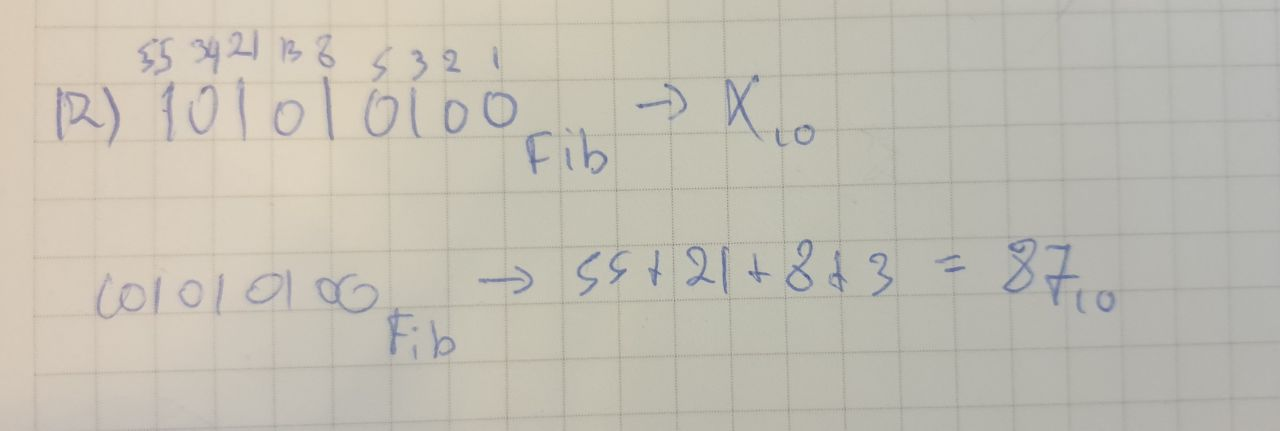 55 34 21 13 8 5 3 2 1
12) 101010100 Fib → X 10
101010100 Fib → 55 + 21 + 8 + 3 = 87 10